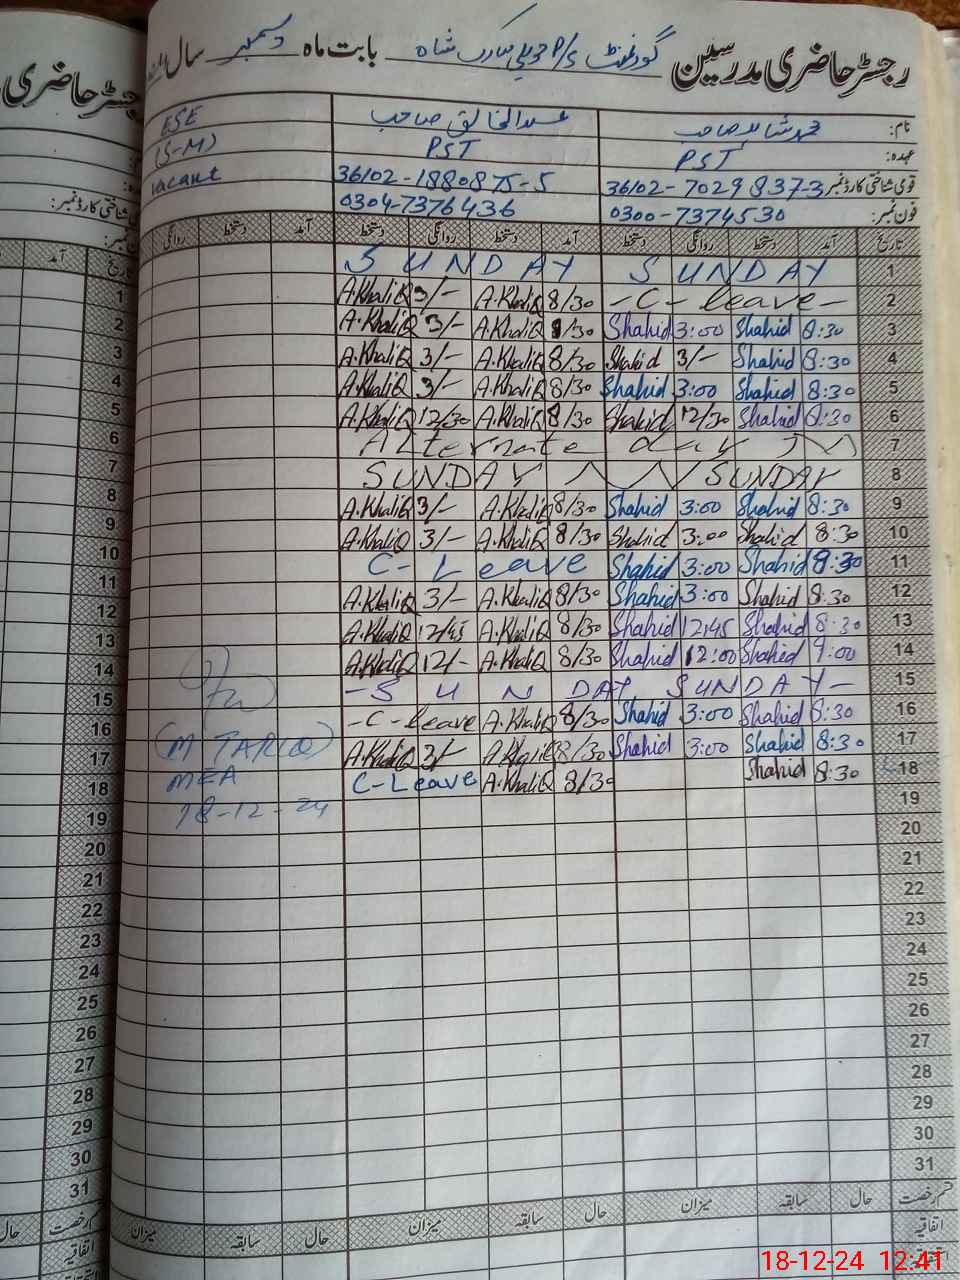 رجسٹر حاضری مدرسین گورنمنٹ P/S حویلی مبارک شاہ بابت ماہ دسمبر سال
نام: محمد شاہد صاحب عبدالخالق صاحب ESE
عہدہ: PST PST (S-M)
قومی شناختی کارڈ نمبر 36102-7029837-3 36102-1880875-5 vacant
فون نمبر: 0300-7374530 0304-7376436
تاریخ آمد دستخط روانگی دستخط آمد دستخط روانگی دستخط آمد دستخط روانگی
1 SUNDAY SUNDAY
2 -C-leave- 8/30 A.KhaliQ 3/- A.KhaliQ
3 8:30 Shahid 3:00 Shahid 8/30 A.KhaliQ 3/- A.KhaliQ
4 8:30 Shahid 3/- Shahid 8/30 A.KhaliQ 3/- A.KhaliQ
5 8:30 Shahid 3:00 Shahid 8/30 A.KhaliQ 3/- A.KhaliQ
6 8:30 Shahid 12/30 Shahid 8/30 A.KhaliQ 12/30 A.KhaliQ
7 Alternate day
8 SUNDAY SUNDAY
9 8:30 Shahid 3:00 Shahid 8/30 A.KhaliQ 3/- A.KhaliQ
10 8:30 Shahid 3:00 Shahid 8/30 A.KhaliQ 3/- A.KhaliQ
11 8:30 Shahid 3:00 Shahid C-Leave
12 8:30 Shahid 3:00 Shahid 8/30 A.KhaliQ 3/- A.KhaliQ
13 8:30 Shahid 12:45 Shahid 8/30 A.KhaliQ 12/45 A.KhaliQ
14 9:00 Shahid 12:00 Shahid 8/30 A.KhaliQ 12/- A.KhaliQ
15 -SUNDAY SUNDAY-
16 8:30 Shahid 3:00 Shahid 8/30 A.KhaliQ -C-leave
17 8:30 Shahid 3:00 Shahid 8/30 A.KhaliQ 3/- A.KhaliQ
18 8:30 Shahid 8/30 A.KhaliQ C-Leave
(M TARIQ)
MEA
18-12-24
19
20
21
22
23
24
25
26
27
28
29
30
31
قسم رخصت حال سابقہ میزان حال سابقہ میزان حال سابقہ میزان
اتفاقیہ
رجسٹر حاضری
تاریخ آمد
1
2
3
4
5
6
7
8
9
10
11
12
13
14
15
16
17
18
19
20
21
22
23
24
25
26
27
28
29
30
31
قسم رخصت حال
اتفاقیہ
18-12-24 12:41